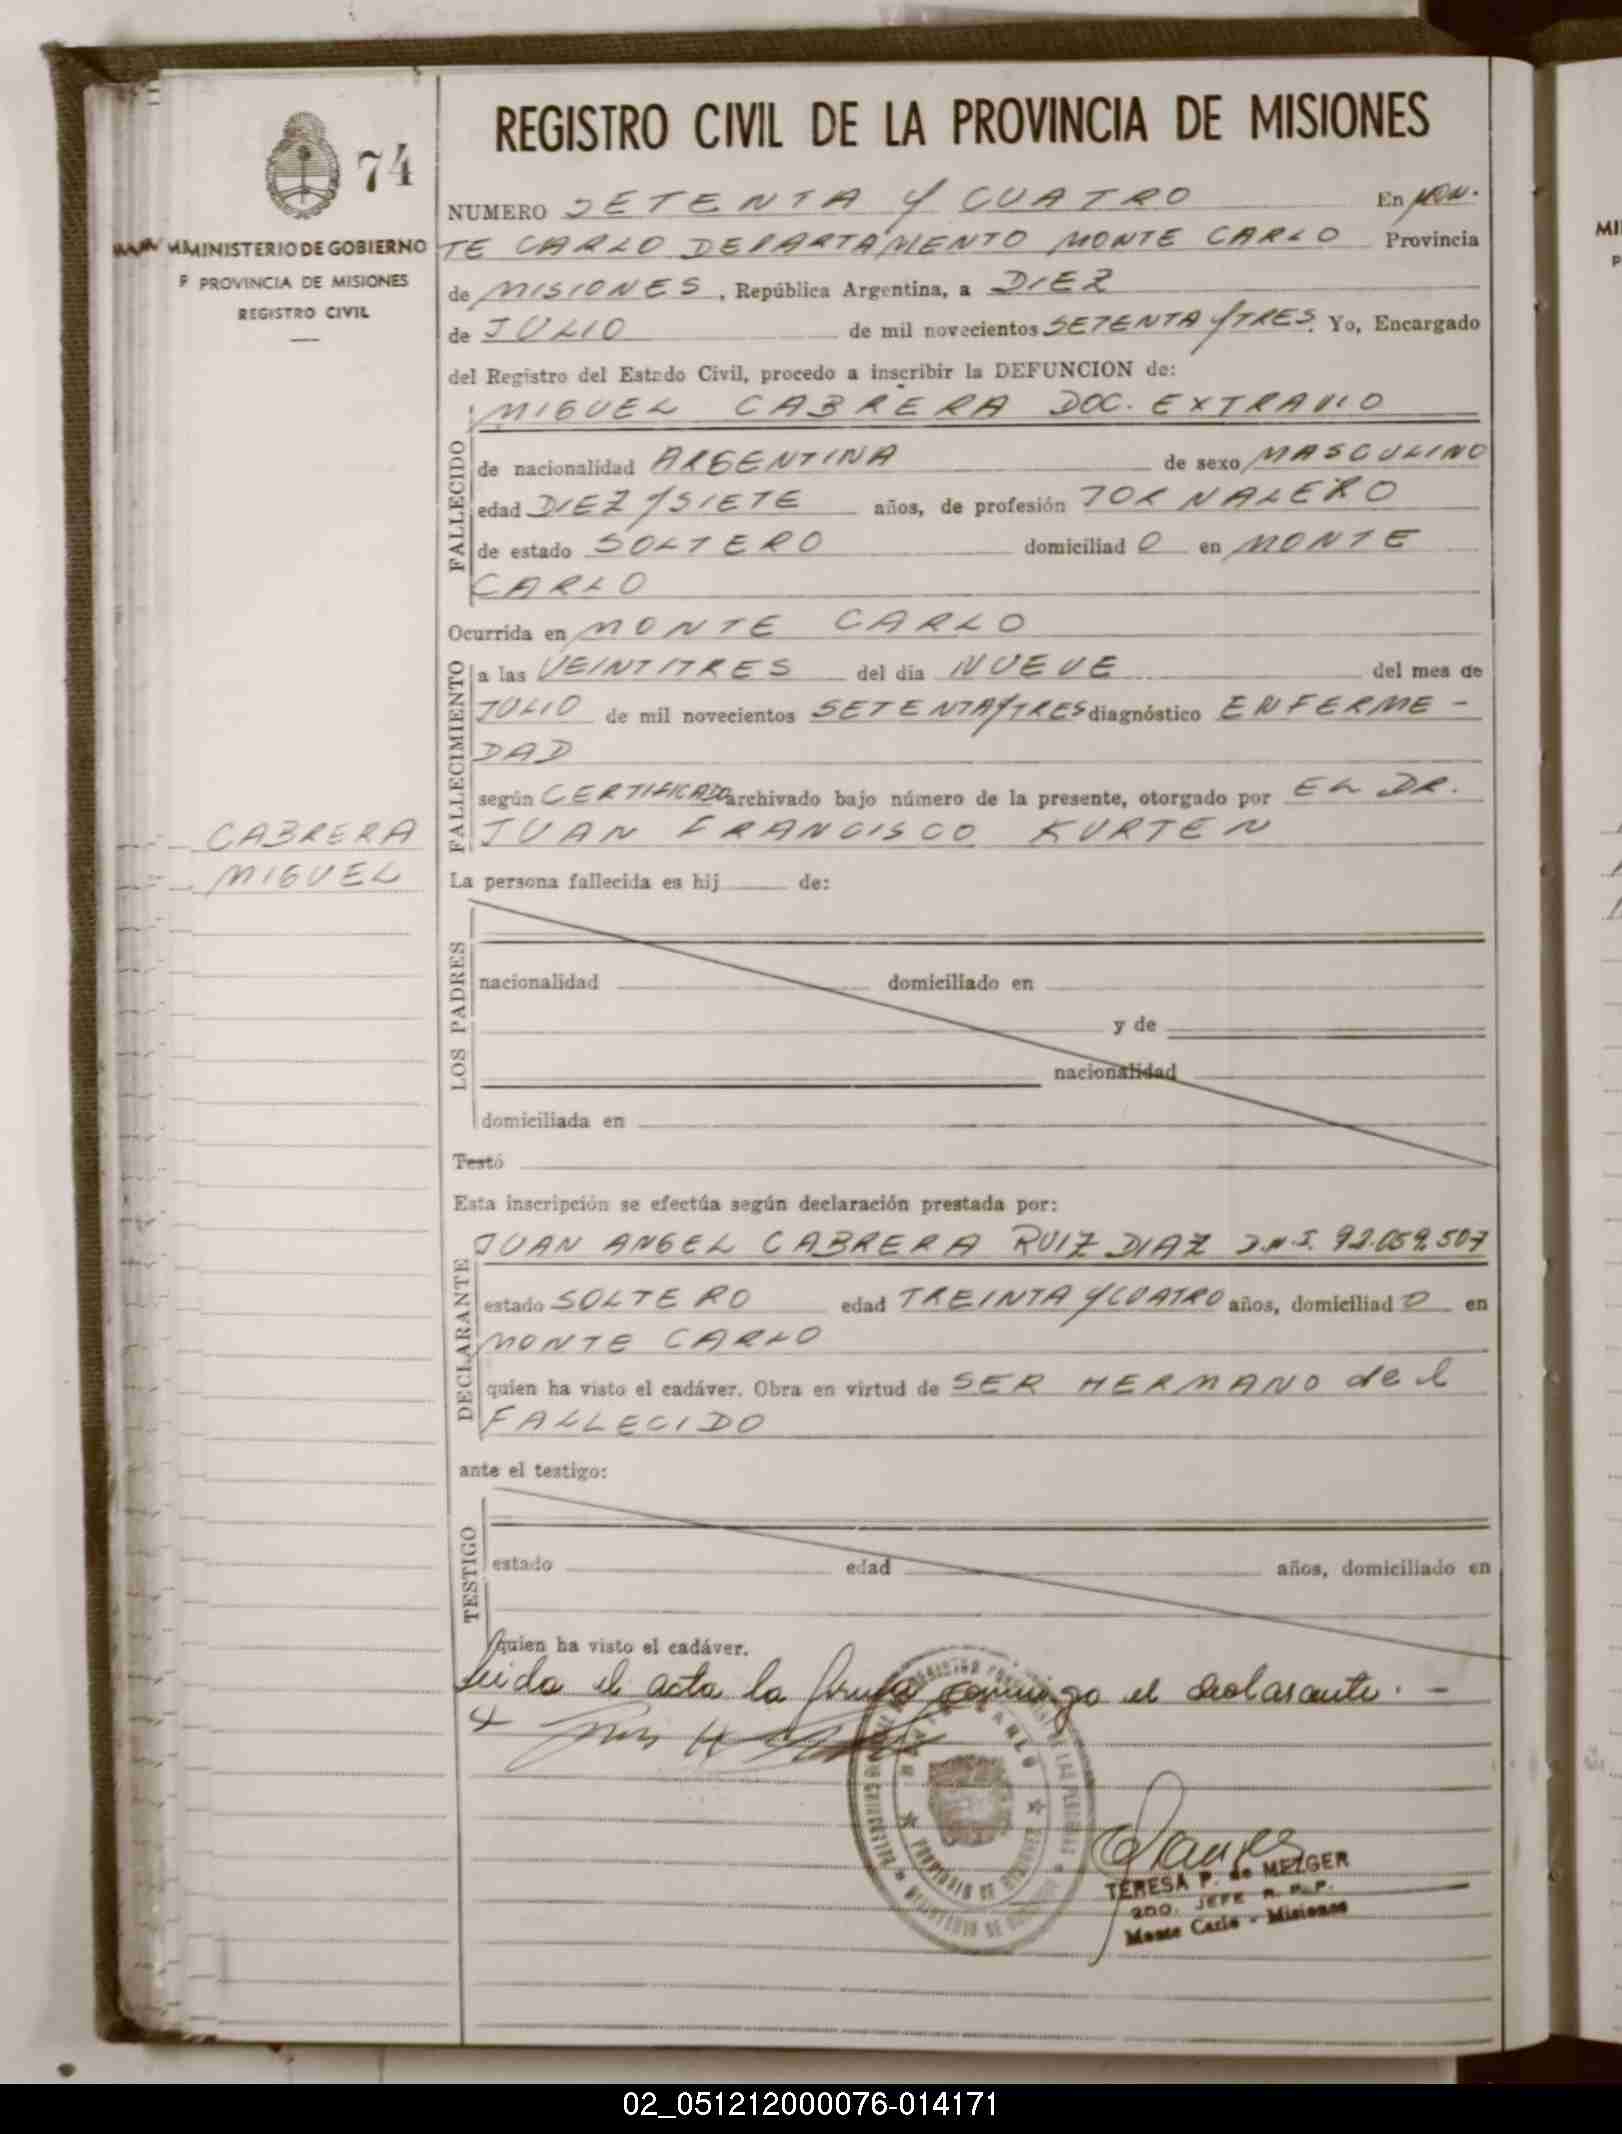 REGISTRO CIVIL DE LA PROVINCIA DE MISIONES
74
MINISTERIO DE GOBIERNO
P PROVINCIA DE MISIONES
REGISTRO CIVIL
NUMERO SETENTA Y CUATRO En MON-
TE CARLO DEPARTAMENTO MONTE CARLO Provincia
de MISIONES, República Argentina, a DIEZ
de JULIO de mil novecientos SETENTA Y TRES. Yo, Encargado
del Registro del Estado Civil, procedo a inscribir la DEFUNCION de:
MIGUEL CABRERA DOC. EXTRAVIO
FALLECIDO
de nacionalidad ARGENTINA de sexo MASCULINO
edad DIEZ Y SIETE años, de profesión JORNALERO
de estado SOLTERO domiciliad O en MONTE
CARLO
Ocurrida en MONTE CARLO
FALLECIMIENTO
a las VEINTITRES del día NUEVE del mes de
JULIO de mil novecientos SETENTA Y TRES diagnóstico ENFERME-
DAD
según CERTIFICADO archivado bajo número de la presente, otorgado por EL DR.
JUAN FRANCISCO KURTEN
CABRERA
MIGUEL
La persona fallecida es hij de:
LOS PADRES
nacionalidad domiciliado en
y de
nacionalidad
domiciliada en
Testó
Esta inscripción se efectúa según declaración prestada por:
JUAN ANGEL CABRERA RUIZ DIAZ D.N.I. 92.059.507
DECLARANTE
estado SOLTERO edad TREINTA Y CUATRO años, domiciliad O en
MONTE CARLO
quien ha visto el cadáver. Obra en virtud de SER HERMANO del
FALLECIDO
ante el testigo:
TESTIGO
estado edad años, domiciliado en
quien ha visto el cadáver.
Leida el acta la firma conmigo el declarante. -
MONTE CARLO
TERESA P. de MEZGER
JEFE R. P. P.
Monte Carlo - Misiones
02_051212000076-014171